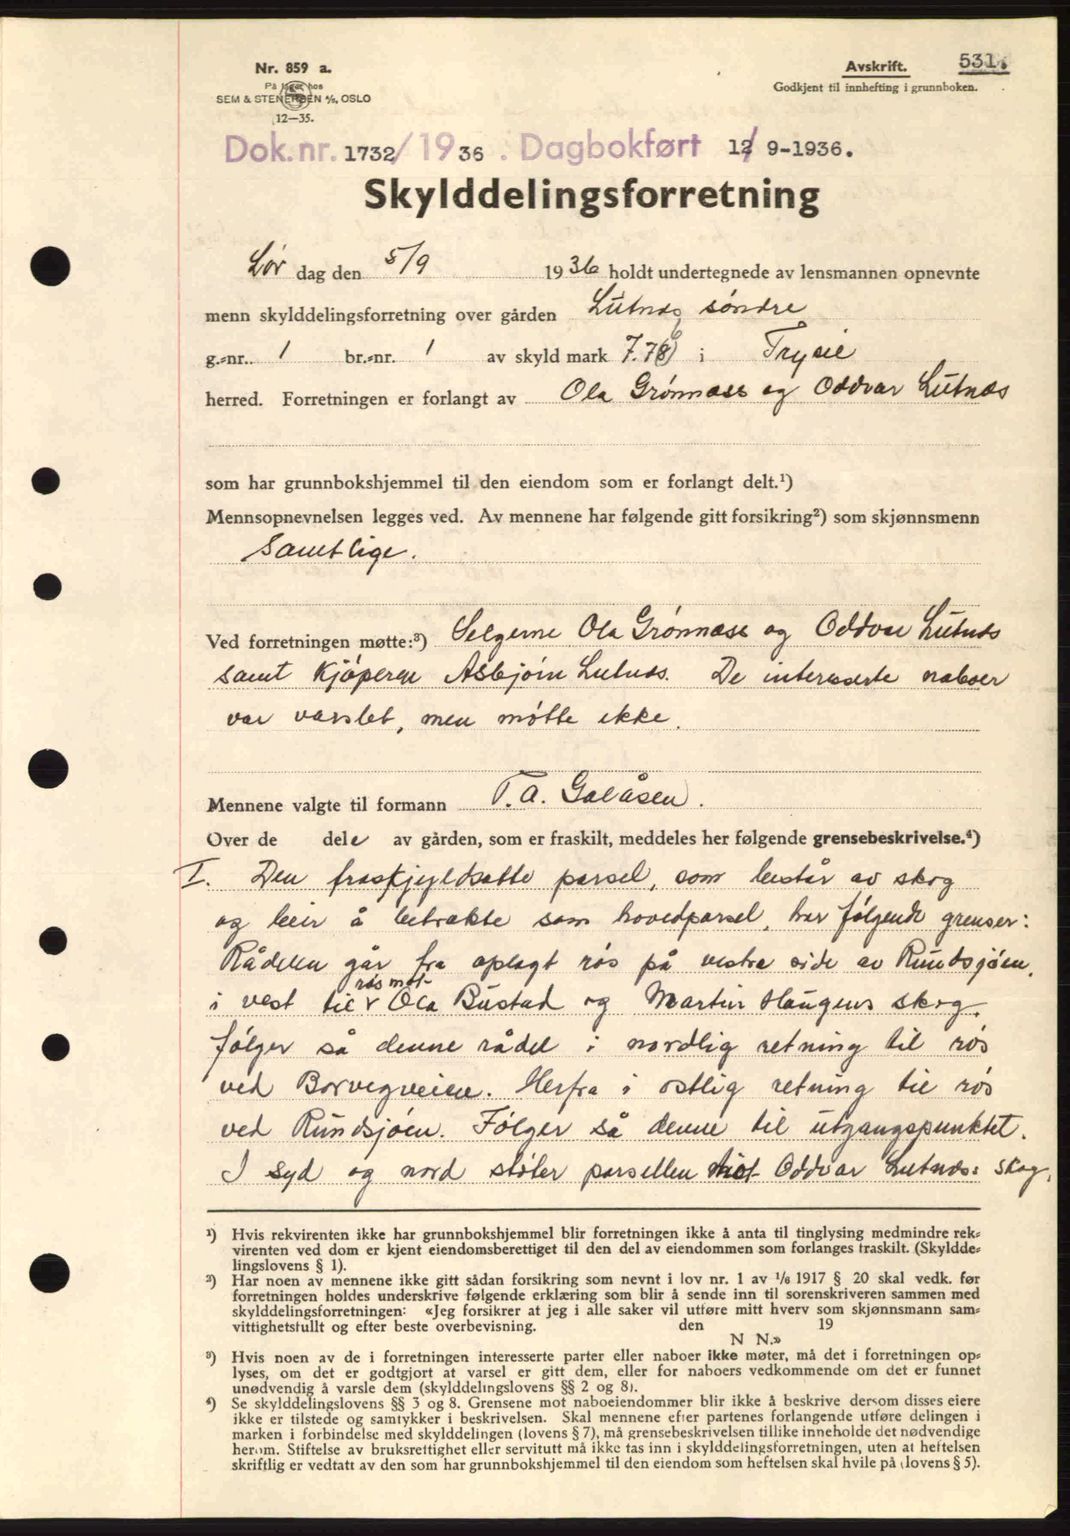 Nr. 859 a.
På lager hos
SEM & STENERSEN A/S, OSLO
12—35.
Avskrift.
531.
Godkjent til innhefting i grunnboken.
Dok. nr. 1732/1936. Dagbokført 12/9-1936.
Skylddelingsforretning
Lør dag den 5/9 1936 holdt undertegnede av lensmannen opnevnte
menn skylddelingsforretning over gården Lutnes søndre
g.-nr. 1 br.-nr. 1 av skyld mark i Trysil
herred. Forretningen er forlangt av Ola Grønnæss og Oddvar Lutnæs
som har grunnbokshjemmel til den eiendom som er forlangt delt.¹)
Mennsopnevnelsen legges ved. Av mennene har følgende gitt forsikring²) som skjønnsmenn
Samtlige.
Ved forretningen møtte:³) Selgerne Ola Grønnæss og Oddvar Lutnæs
samt kjøperen Asbjørn Lutnæs. De interesserte naboer
var varslet, men møtte ikke.
Mennene valgte til formann T. A. Galåsen.
Over de dele av gården, som er fraskilt, meddeles her følgende grensebeskrivelse.⁴)
I. Den fraskjyldsatte parsel, som består av skog
og leir å betrakte som hovedparsel, har følgende grenser:
Rådelen går fra oplagt røs på vestre side av Rundsjøen,
i vest til røs mot Ola Bustad og Martin Haugens skog,
følger så denne rådel i nordlig retning til røs
ved Borvegveien. Herfra i østlig retning til røs
ved Rundsjøen. Følger så denne til utgangspunktet.
I syd og nord støter parsellen mot Oddvar Lutnæs: skog.
¹) Hvis rekvirenten ikke har grunnbokshjemmel blir forretningen ikke å anta til tinglysing medmindre rek-
virenten ved dom er kjent eiendomsberettiget til den del av eiendommen som forlanges fraskilt. (Skyldde-
lingslovens § 1).
²) Har noen av mennene ikke gitt sådan forsikring som nevnt i lov nr. 1 av 1/6 1917 § 20 skal vedk. før
forretningen holdes underskrive følgende erklæring som blir å sende inn til sorenskriveren sammen med
skylddelingsforretningen: «Jeg forsikrer at jeg i alle saker vil utføre mitt hverv som skjønnsmann sam-
vittighetsfullt og efter beste overbevisning. den 19
N N.»
³) Hvis noen av de i forretningen interesserte parter eller naboer ikke møter, må det i forretningen op-
lyses, om det er godtgjort at varsel er gitt dem, eller for naboers vedkommende om det er funnet
unødvendig å varsle dem (skylddelingslovens §§ 2 og 8).
⁴) Se skylddelingslovens §§ 3 og 8. Grensene mot naboeiendommer blir ikke å beskrive dersom disses eiere
ikke er tilstede og samtykker i beskrivelsen. Skal mennene efter partenes forlangende utføre delingen i
marken i forbindelse med skylddelingen (lovens § 7), må grensebeskrivelsen tillike inneholde det nødvendige
herom. Stiftelse av bruksrettighet eller servitutt må ikke tas inn i skylddelingsforretningen, uten at heftelsen
skriftlig er vedtatt av den som har grunnbokshjemmel til den eiendom som heftelsen skal hvile på (lovens § 5).